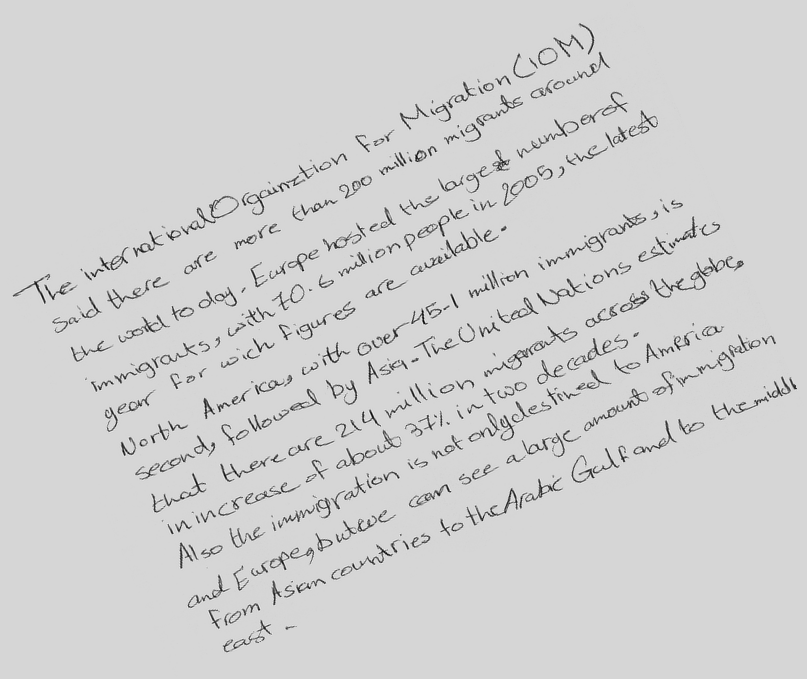 The international Orgainztion For Migration (IOM)
said there are more than 200 million migrants around
the world to day. Europe hosted the largest number of
immigrants, with 70.6 million people in 2005, the latest
year for wich figures are available.
North America, with over 45-1 million immigrants, is
second, followed by Asia. The United Nations estimates
that there are 214 million migrants across the globe,
in increase of about 37% in two decades.
Also the immigration is not only destined to America
and Europe, but we can see a large amount of immigration
from Asian countries to the Arabic Gulf and to the middle
east.